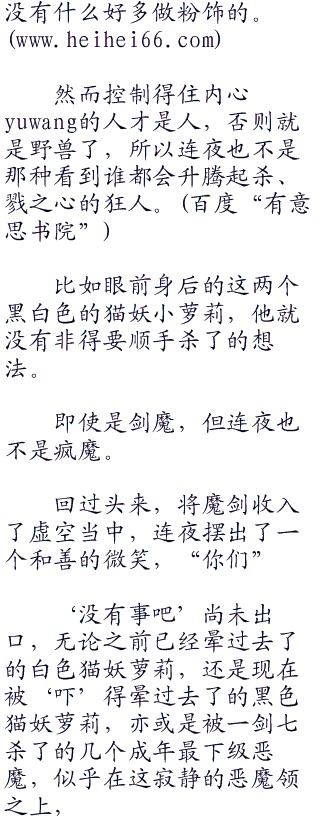 没有什么好多做粉饰的。
(www.heihei66.com)
然而控制得住内心
yuwang的人才是人，否则就
是野兽了，所以连夜也不是
那种看到谁都会升腾起杀、
戮之心的狂人。(百度“有意
思书院”)
比如眼前身后的这两个
黑白色的猫妖小萝莉，他就
没有非得要顺手杀了的想
法。
即使是剑魔，但连夜也
不是疯魔。
回过头来，将魔剑收入
了虚空当中，连夜摆出了一
个和善的微笑，“你们”
‘没有事吧’尚未出
口，无论之前已经晕过去了
的白色猫妖萝莉，还是现在
被‘吓’得晕过去了的黑色
猫妖萝莉，亦或是被一剑七
杀了的几个成年最下级恶
魔，似乎在这寂静的恶魔领
之上，